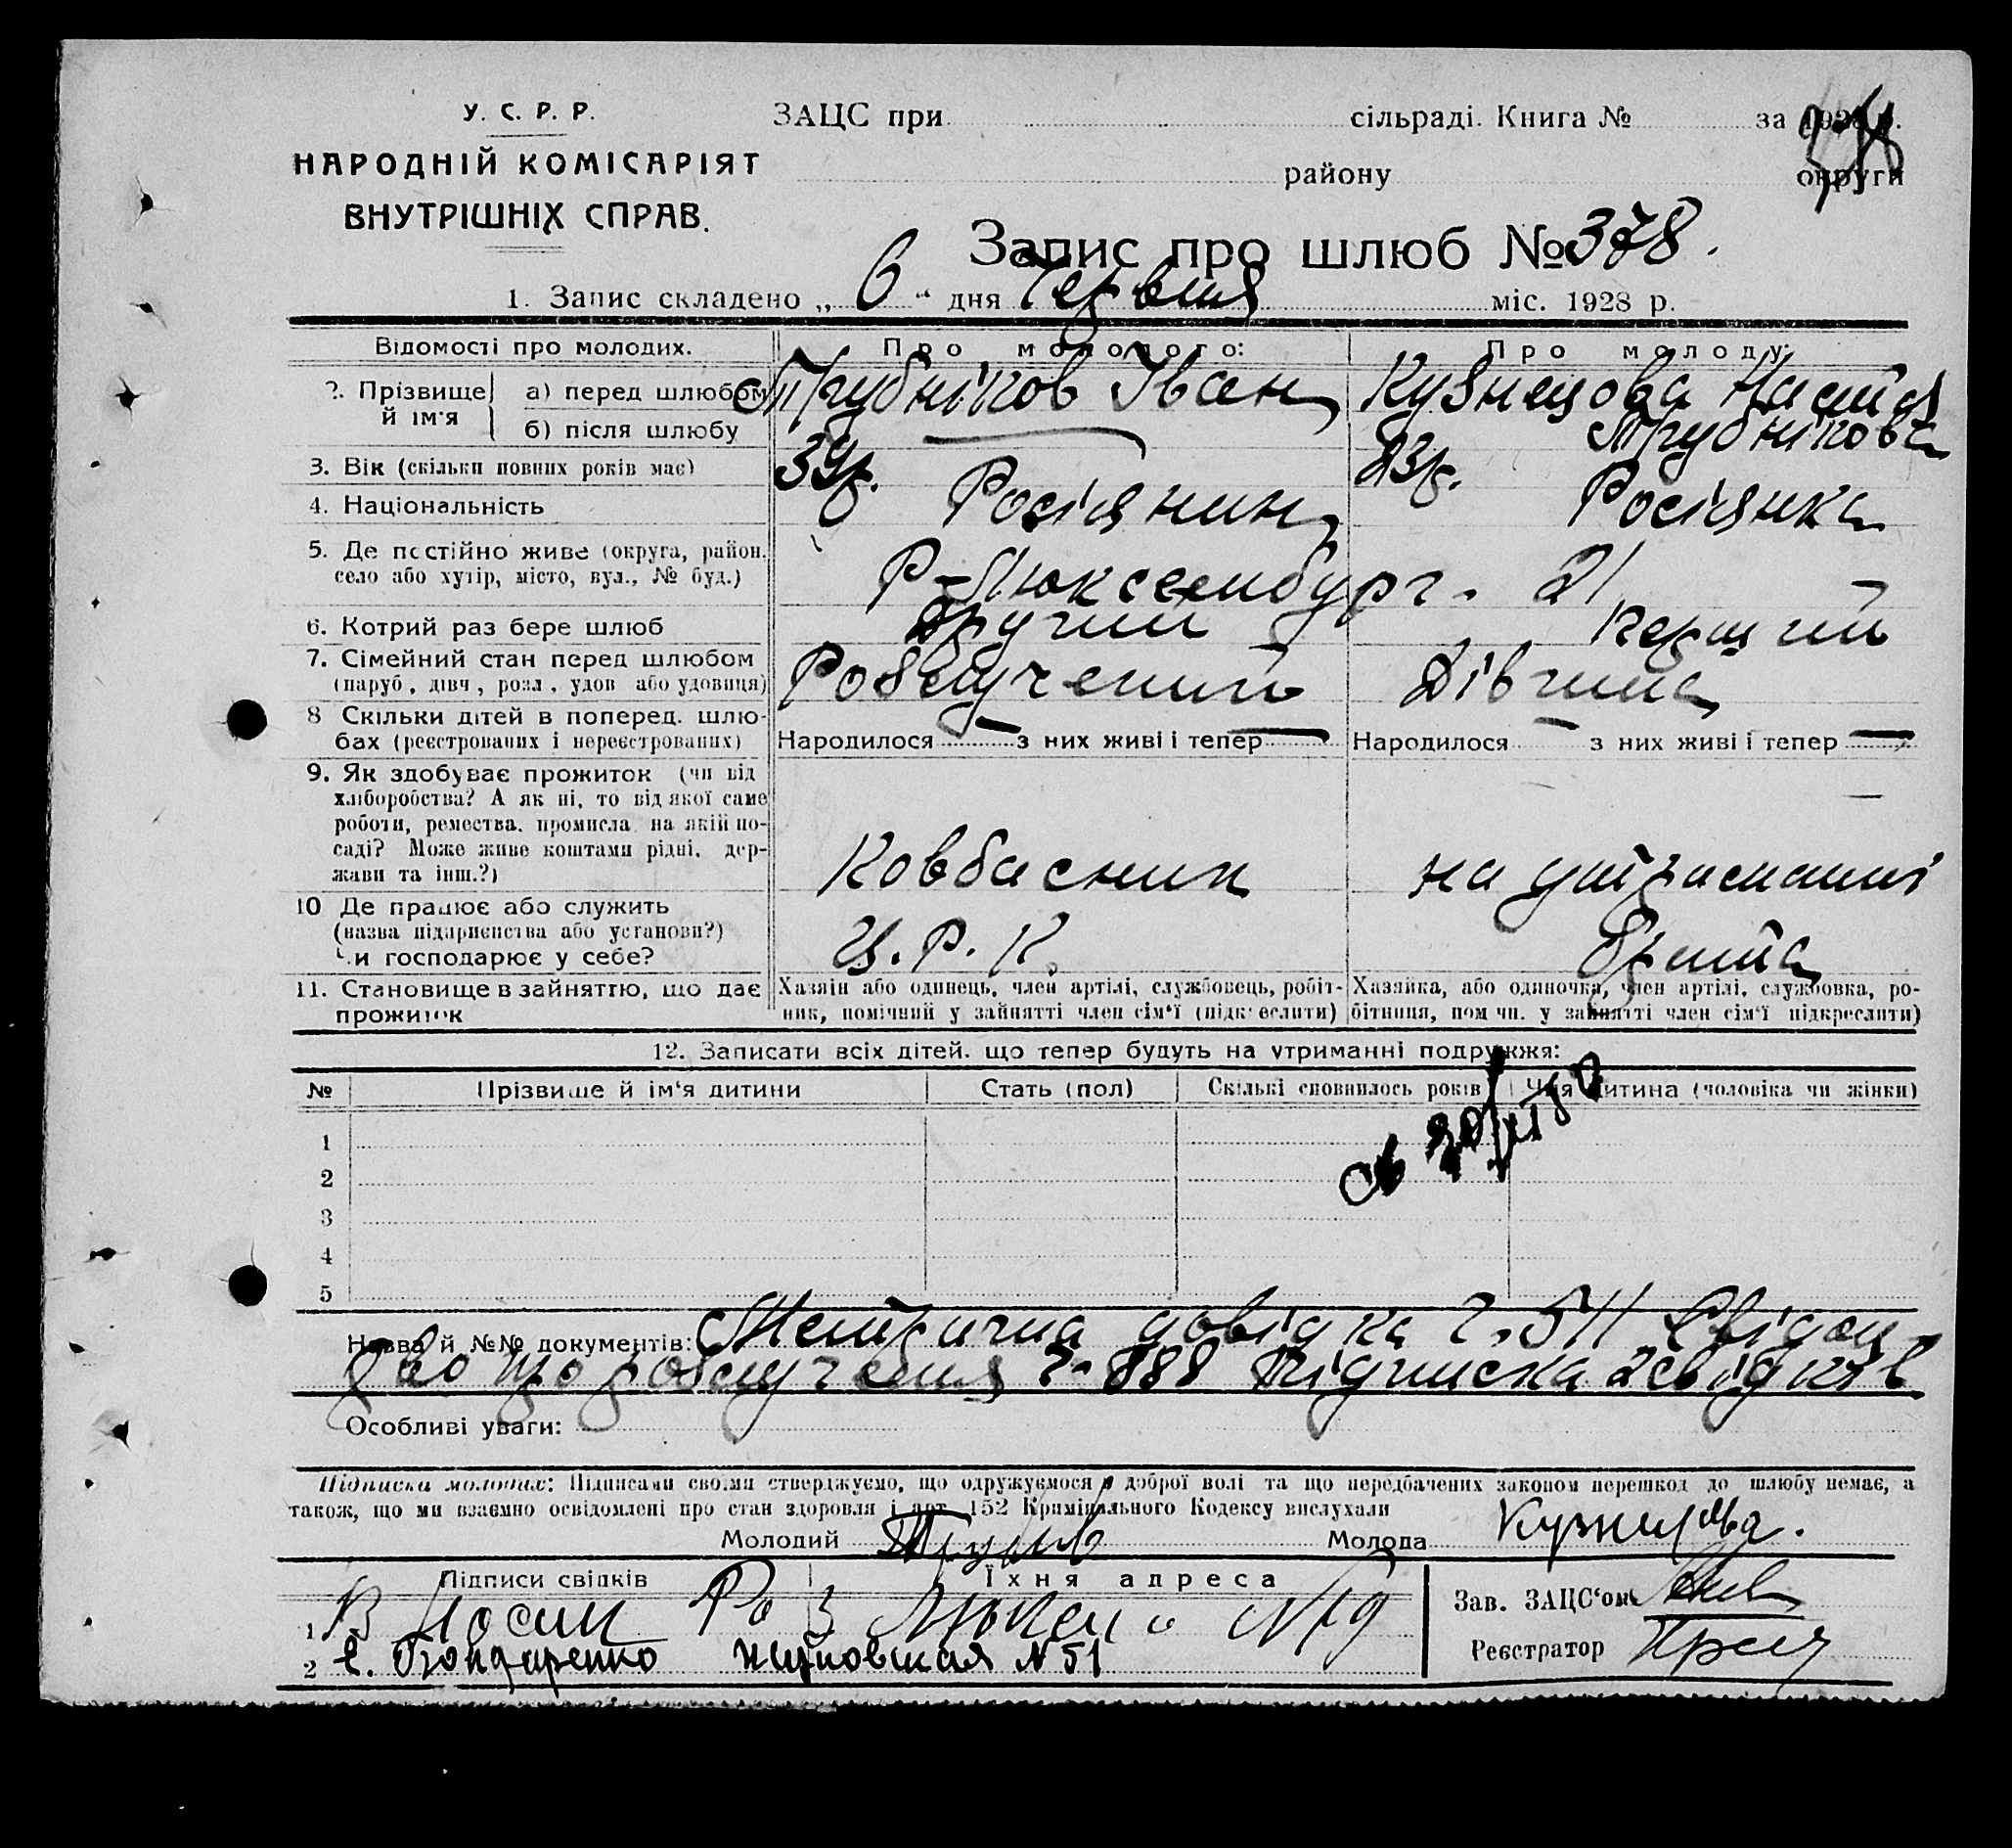 У. С. Р. Р.
НАРОДНІЙ КОМІСАРІЯТ
ВНУТРІШНІХ СПРАВ.
ЗАЦС при сільраді. Книга № за 1928 р.
району округи
Запис про шлюб № 378.
1. Запис складено „ 6 “ дня Червня міс. 1928 р.
Відомості про молодих. Про молодого: Про молоду:
2. Прізвище й ім'я а) перед шлюбом Трубніков Іван Кузнецова Настя
б) після шлюбу Трубнікова
3. Вік (скільки повних років має) 39р. 23р.
4. Національність Росіянин Росіянка
5. Де постійно живе (округа, район.
село або хутір, місто, вул., № буд.) Р-Люксембург. 21
6. Котрий раз бере шлюб Другий Перший
7. Сімейний стан перед шлюбом
(паруб, дівч, розл, удов або удовиця) Розлучений Дівчина
8 Скільки дітей в поперед. шлю-
бах (реєстрованих і нереєстрованих) Народилося — з них живі і тепер — Народилося — з них живі і тепер —
9. Як здобуває прожиток (чи від
хліборобства? А як ні, то від якої саме
роботи, ремества, промисла, на якій по-
саді? Може живе коштами рідні, дер-
жави та інш.?) Ковбасник на утриманні
10 Де працює або служить
(назва підприємства або установи?)
Чи господарює у себе? Ц. Р. К.
11. Становище в зайняттю, що дає
прожиток
Хазяїн або одинець, член артілі, службовець, робіт-
ник, помічний у зайнятті член сім'ї (підкреслити)
Хазяйка, або одиночка, член артілі, службовка, ро-
бітниця, помічн. у зайнятті член сім'ї підкреслити)
12. Записати всіх дітей, що тепер будуть на утриманні подружжя:
№ Прізвище й ім'я дитини Стать (пол) Скількі сповнилось років Чия дитина (чоловіка чи жінки)
1
2
3
4
5
Назва й №№ документів: Метрична довідка
про розлучення 888 Підписка 2 свідків
Особливі уваги:
Підписка молодих: Підписами своїми стверджуємо, що одружуємося з доброї волі та що передбачених законом перешкод до шлюбу немає, а
також, що ми взаємно освідомлені про стан здоровля і арт. 152 Кримінального Кодексу вислухали
Молодий Молода Кузнецова.
Підписи свідків Їхня адреса
1
2 Е. Гондаренко № 51
Зав. ЗАЦС'ом
Реєстратор